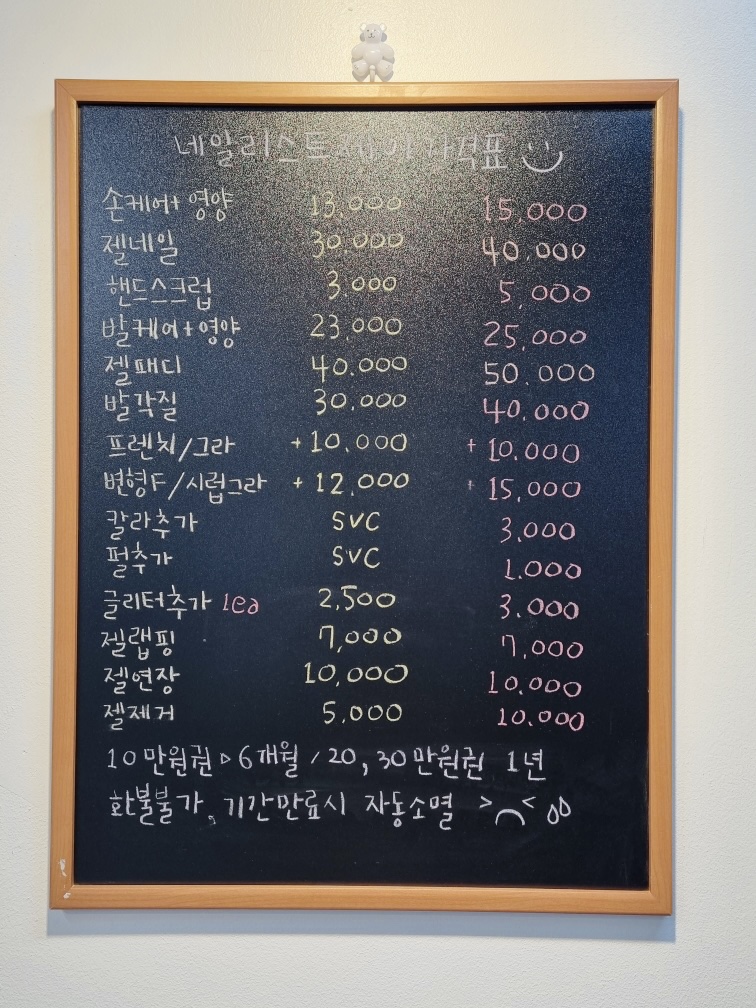 네일리스트 가격표
손케어+영양 13,000 15,000
젤네일 30,000 40,000
핸드스크럽 3,000 5,000
발케어+영양 23,000 25,000
젤패디 40,000 50,000
발각질 30,000 40,000
프렌치/그라 +10,000 +10,000
변형F/시럽그라 +12,000 +15,000
칼라추가 SVC 3,000
펄추가 SVC 1,000
글리터추가 1ea 2,500 3,000
젤랩핑 7,000 7,000
젤연장 10,000 10,000
젤제거 5,000 10,000
10만원권▷6개월 / 20, 30만원권 1년
환불불가, 기간만료시 자동소멸